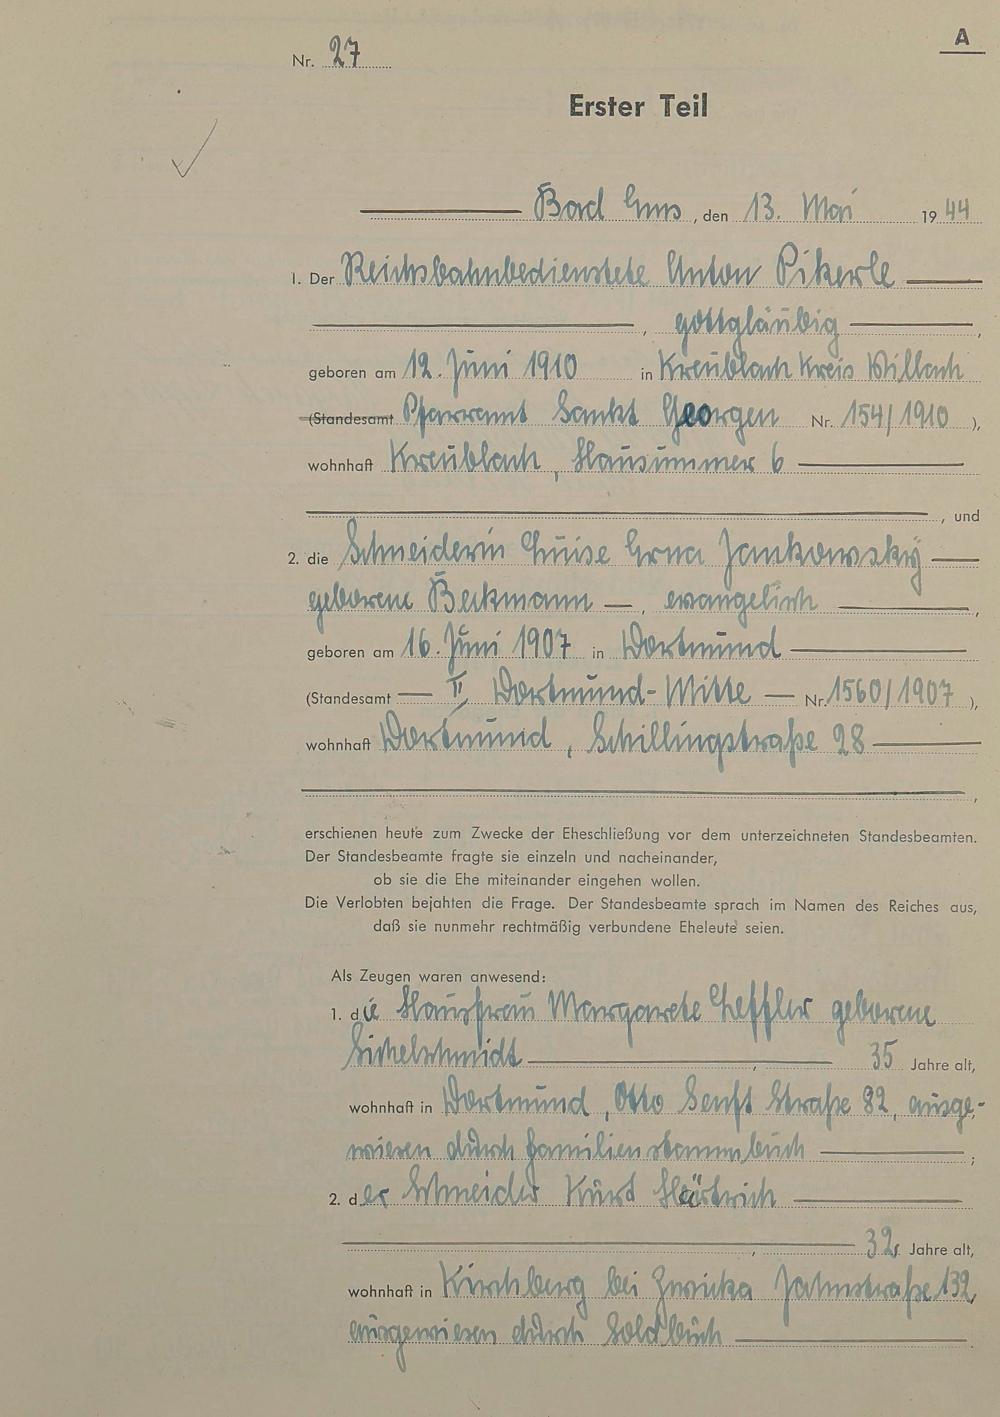 A
Nr. 27
Erster Teil
Bad Ems, den 13. Mai 1944
1. Der Reichsbahnbedienstete Anton Pikerle
, gottgläubig ,
geboren am 12. Juni 1910 in Kreublach Kreis Villach
(Standesamt Pfarramt Sankt Georgen Nr. 154/1910 ),
wohnhaft Kreublach, Hausnummer 6
, und
2. die Schneiderin Luise Erna Jankowsky
geborene Beckmann —, evangelisch ,
geboren am 16. Juni 1907 in Dortmund
(Standesamt — II, Dortmund-Mitte — Nr. 1560/1907 ),
wohnhaft Dortmund, Schillingstraße 28
,
erschienen heute zum Zwecke der Eheschließung vor dem unterzeichneten Standesbeamten.
Der Standesbeamte fragte sie einzeln und nacheinander,
ob sie die Ehe miteinander eingehen wollen.
Die Verlobten bejahten die Frage. Der Standesbeamte sprach im Namen des Reiches aus,
daß sie nunmehr rechtmäßig verbundene Eheleute seien.
Als Zeugen waren anwesend:
1. die Hausfrau Margarete Leffler geborene
Sichelschmidt , 35 Jahre alt,
wohnhaft in Dortmund, Otto Senft Straße 82, ausge-
wiesen durch Familienstammbuch ;
2. der Schneider Kurd
, 32 Jahre alt,
wohnhaft in Kirchberg bei Zwicka Jahnstraße 132,
ausgewiesen durch Soldbuch